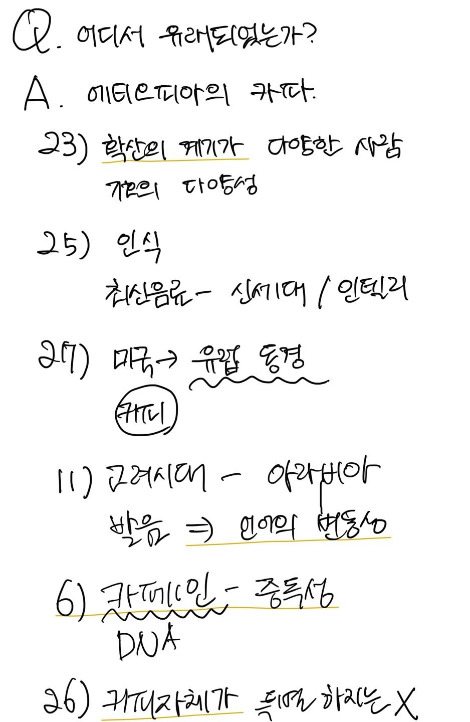 Q. 어디서 유래되었는가?
A. 에티오피아의 카파.
23) 확산의 계기가 다양한 사람
기호의 다양성
25) 인식
최신음료 - 신세대 / 인텔리
27) 미국 → 유럽 동경
커피
11) 고려시대 - 아라비아
발음 ⇒ 언어의 변동성
6) 카페인 - 중독성
DNA
26) 커피자체가 특별하지는 X